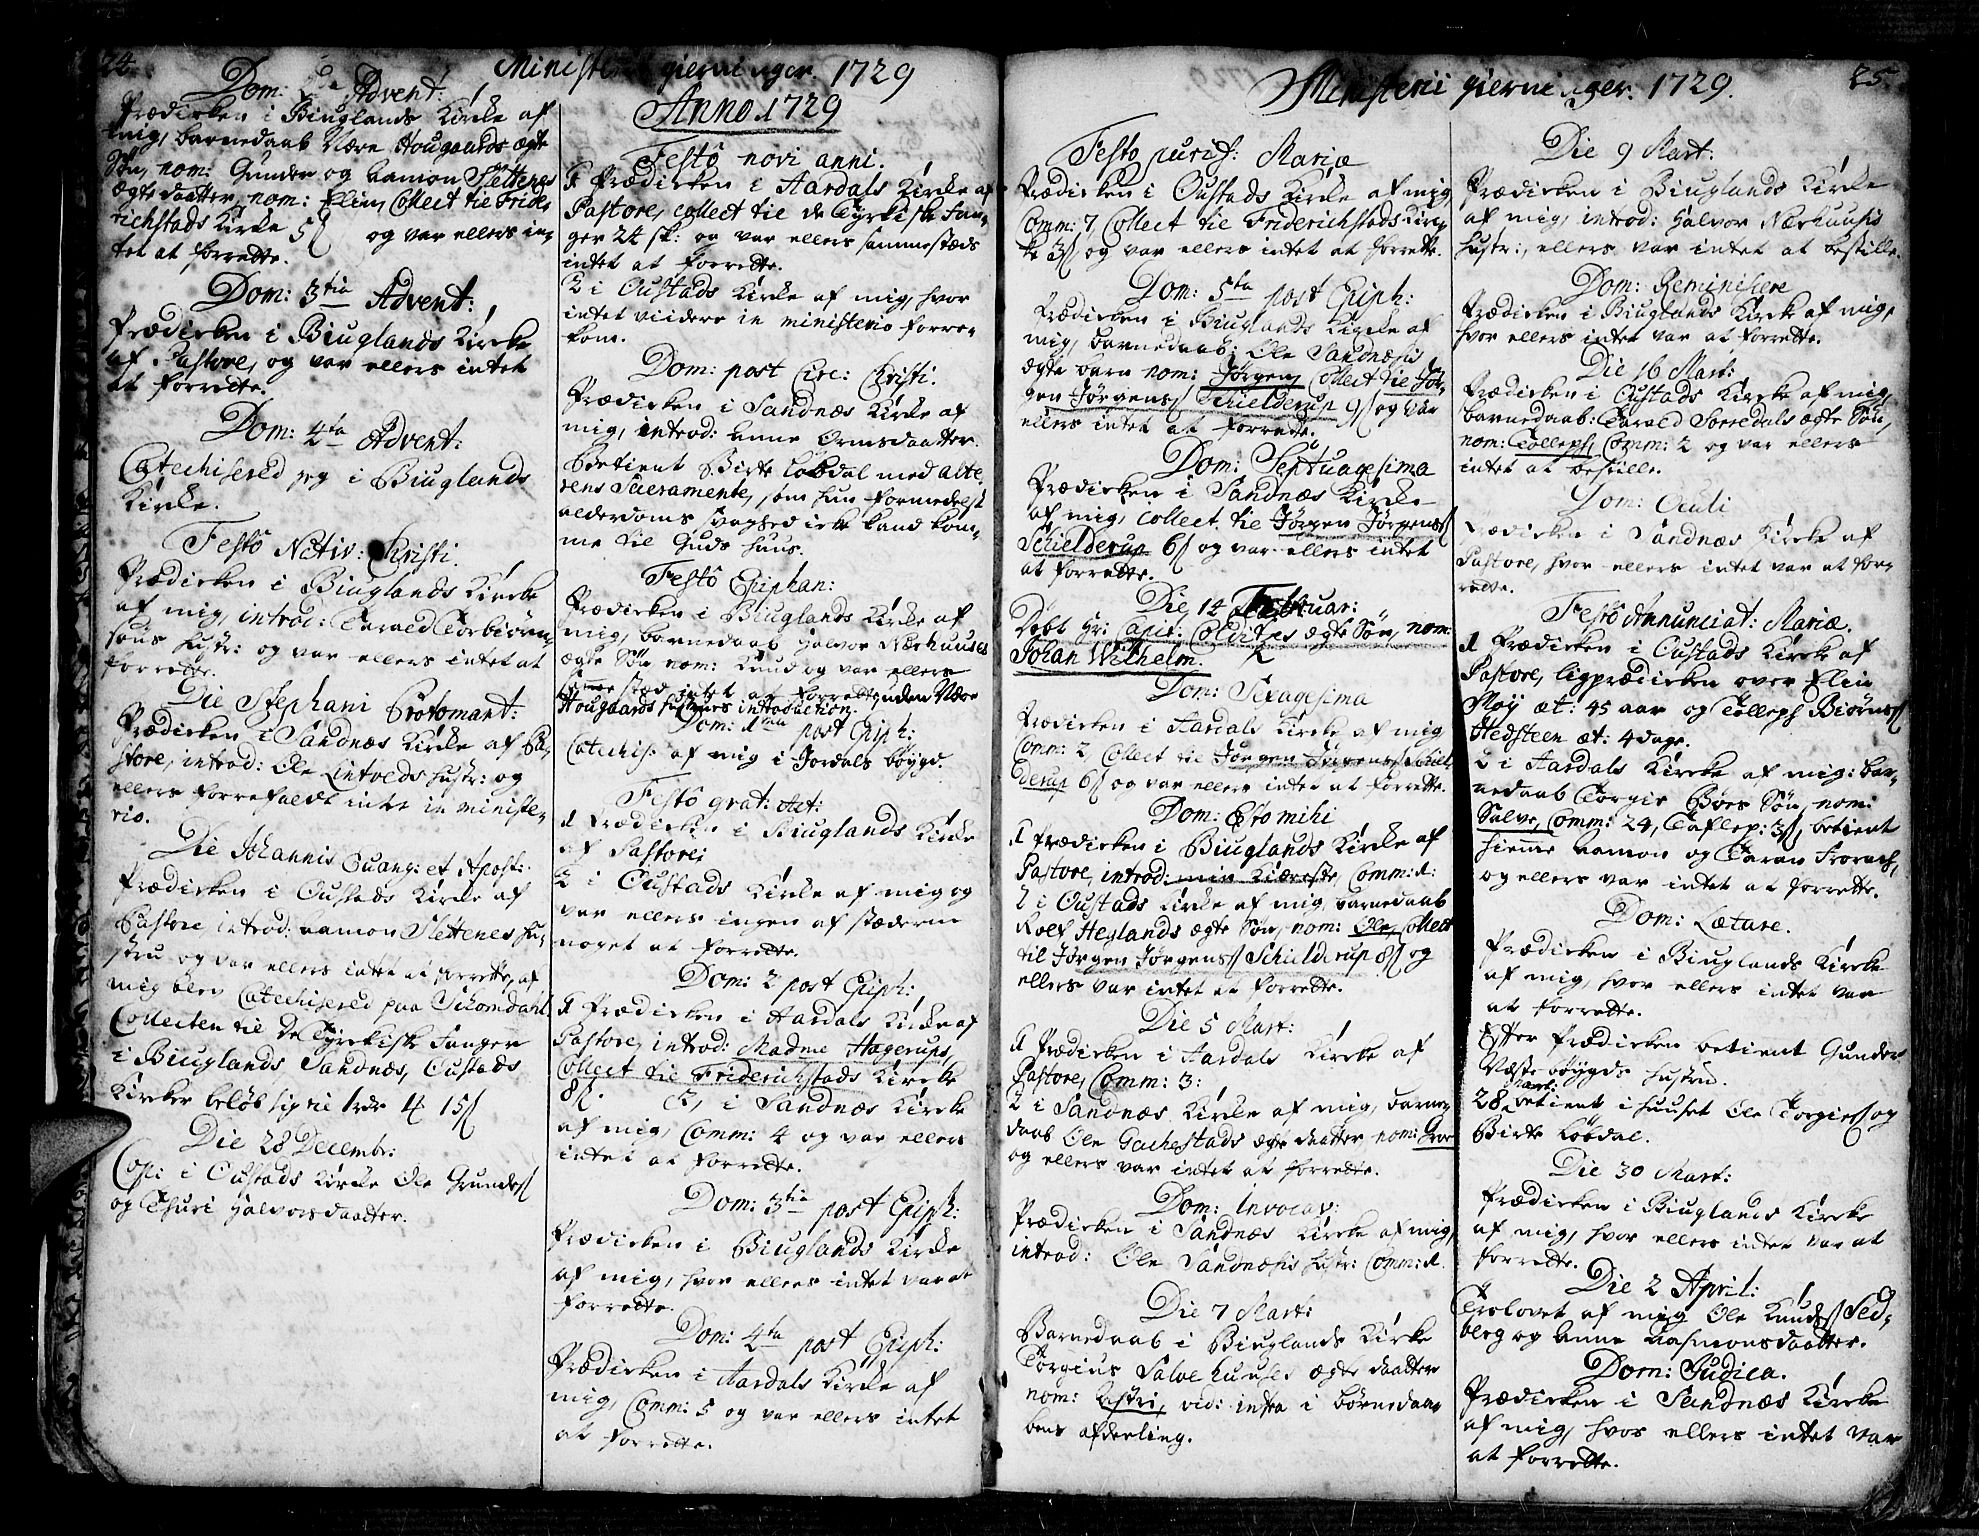 24.
Ministerii gierninger. 1729
Dom: 2da Advent:
Prædicken i Biuglands Kircke af
mig, barnedaab Nære Hougaards ægte
Søn, nom: Gunder og Aamon Slettenes
ægte daatter, nom: Elin, Collect til Fride-
richstads Kirke 5ß og var ellers in-
tet at forrette.
Dom: 3tia Advent:
Prædicken i Biuglands Kircke
af Pastore, og var ellers intet
at forrette.
Dom: 4ta Advent:
Catechisered jeg i Biuglands
Kircke.
Festo Nativ: Christi.
Prædicken i Biuglands Kircke
af mig, introd: Tarald Torbiørn-
søns hustr: og var ellers intet at
forrette.
Die Stephani Protomart:
Prædicken i Sandnæs Kircke af Pa-
store, introd: Ole Lintveds hustr: og
ellers forrefaldt intet in ministe-
rio.
Die Johannis Evang: et Apost:
Prædicken i Oustads Kircke af
Pastore introd: Aamon Slettenes hu-
stru og var ellers intet at forrette, af
mig blev Catechisered paa Skomdahl
Collecten til de Tyrckiske Fanger
i Biuglands, Sandnæs, Oustads
Kircker beløb sig til 1 rdr 4 15ß
Die 28 Decembr:
Cop: i Oustads Kircke Ole Gunders
og Thuri Halvorsdaatter.
Anno 1729
Festo novi anni.
1 Prædicken i Aardals Kircke af
Pastore, collect til de Tyrkiske Fan-
ger 24 sk: og var ellers sammestæds
intet at forrette.
2 i Oustads Kircke af mig, hvor
intet viidere in ministerio forre-
kom.
Dom: post Circ: Christi.
Prædicken i Sandnæs Kircke af
mig, introd: Anne Ormsdaatter.
Betient Birte Løbdal med alte-
rens Sacramente, som hun formedelst
alderdoms svaghed icke kand kom-
me til Guds huus.
Festo Epiphan:
Prædicken i Biuglands Kircke af
mig, barnedaab Halvor Nærhuuses
ægte Søn nom: Knud og var ellers
sted intet at forrette, uden Nære
Hougaards hustrues introduction.
Dom: 1ma post Epiph:
Catechis: af mig i Jordals bøygd.
Festo grat: Act:
1 Prædicken i Biuglands Kircke
af Pastore;
2 i Oustads Kircke af mig og
var ellers ingen af stæderne
noget at forrette.
Dom: 2 post Epiph:
1 Prædicken i Aardals Kircke af
Pastore, introd: Madme Hagerups,
Collect til Friderichstads Kircke
8ß. 2, i Sandnæs Kircke
af mig, Comm: 4 og var ellers
intet at forrette.
Dom: 3tia post Epiph:
Prædicken i Biuglands Kircke
af mig, hvor ellers intet var at
forrette.
Dom: 4ta post Epiph:
Prædicken i Aardals Kircke af
mig, Comm: 5 og var ellers intet
at forrette.
Ministerii gierninger. 1729.
25.
Festo purif: Mariæ
Prædicken i Oustads Kircke af mig,
Comm: 7, Collect til Friderichstads Kirc-
ke 3ß og var ellers intet at forrette.
Dom: 5ta post Epiph:
Prædicken i Biuglands Kircke af
mig, barnedaab: Ole Sandnæsis
ægte barn nom: Jørgen, Collect til Jør-
gen Jørgens: Schielderup 9ß og var
ellers intet at forrette.
Dom: Septuagesima
Prædicken i Sandnæs Kircke
af mig, collect til Jørgen Jørgens:
Schielderup 6ß og var ellers intet
at forrette.
Die 14 Februar:
Døbt Hr: Capit: Colditzes ægte Søn, nom:
Johan Wilhelm.
Dom: Sexagesima
Prædicken i Aardals Kircke af mig
Comm: 2 Collect til Jørgen Jørgens: Schiel-
derup 6ß og var ellers intet at forrette.
Dom: Esto mihi
1 Prædicken i Biuglands Kircke af
Pastore, introd: min Kiæreste, Comm: 1:
2 i Oustads Kircke af mig, barnedaab
Rolf Heglands ægte Søn, nom: Ole, Collect
til Jørgen Jørgens: Schielderup 8ß og
ellers var intet at forrette.
Die 5 Mart:
1 Prædicken i Aardals Kircke af
Pastore, Comm: 3:
2 i Sandnæs Kircke af mig, barne-
daab Ole Gachestads ægte daatter nom: Groe
og ellers var intet at forrette.
Dom: Invocav:
Prædicken i Sandnæs Kircke af mig,
introd: Ole Sandnæsis hustr: Comm: 1.
Die 7 Mart:
Barnedaab i Biuglands Kircke
Torgius Salve huuses ægte daatter
nom: Astri, vid: infra i børnedaa-
bens afdeeling.
Die 9 Mart:
Prædicken i Biuglands Kircke
af mig, introd: Halvor Nærhuusis
hustr:, ellers var intet at bestille.
Dom: Reminiscere
Prædicken i Biuglands Kircke af mig,
hvor ellers intet var at forrette.
Die 16 Mart:
Prædicken i Oustads Kircke af mig,
barnedaab: Tarald Sorredals ægte Søn,
nom: Tolleph, Comm: 2 og var ellers
intet at bestille.
Dom: Oculi
Prædicken i Sandnæs Kircke af
Pastore, hvor ellers intet var at for-
rette.
Festo Annunciat: Mariæ.
1 Prædicken i Oustads Kircke af
Pastore, ligprædicken over Elin
Moy æt: 45 aar og Tolleph Biørns:
Hedsteen æt: 4 dage.
2 i Aardals Kircke af mig: bar-
nedaab Torgis Bøes Søn, nom:
Salve, Comm: 24, Taflep: 3ß, betient
hiemme Aamon og Taran Froraas,
og ellers var intet at forrette.
Dom: Lætare.
Prædicken i Biuglands Kircke
af mig, hvor ellers intet var
at forrette.
Efter Prædicken betient Gunder
Væstebøygds hustru.
28 Mart: betient i huuset Ole Torgiers: og
Birte Løbdal.
Die 30 Mart:
Prædicken i Biuglands Kircke
af mig, hvor ellers intet var at
forrette.
Die 2 April:
Trolovet af mig Ole Knuds: Sed-
berg og Anne Aasmonsdaatter.
Dom: Judica.
Prædicken i Sandnæs Kircke
af mig, hvor ellers intet var
at forrette.